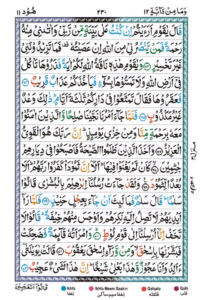 وَمَا مِنْ دَآبَّةٍ ١٢ ٢٣٠ هُوْد ١١
قَالَ يٰقَوْمِ اَرَءَيْتُمْ اِنْ كُنْتُ عَلٰى بَيِّنَةٍ مِّنْ رَّبِّىْ وَاٰتٰىنِىْ مِنْهُ
رَحْمَةً فَمَنْ يَّنْصُرُنِىْ مِنَ اللّٰهِ اِنْ عَصَيْتُهٗ فَمَا تَزِيْدُوْنَنِىْ
غَيْرَ تَخْسِيْرٍ وَيٰقَوْمِ هٰذِهٖ نَاقَةُ اللّٰهِ لَكُمْ اٰيَةً فَذَرُوْهَا تَاْكُلْ
فِىْ اَرْضِ اللّٰهِ وَلَا تَمَسُّوْهَا بِسُوْٓءٍ فَيَاْخُذَكُمْ عَذَابٌ قَرِيْبٌ
فَعَقَرُوْهَا فَقَالَ تَمَتَّعُوْا فِىْ دَارِكُمْ ثَلٰثَةَ اَيَّامٍ ذٰلِكَ وَعْدٌ
غَيْرُ مَكْذُوْبٍ فَلَمَّا جَآءَ اَمْرُنَا نَجَّيْنَا صٰلِحًا وَّالَّذِيْنَ اٰمَنُوْا
مَعَهٗ بِرَحْمَةٍ مِّنَّا وَمِنْ خِزْىِ يَوْمِئِذٍ اِنَّ رَبَّكَ هُوَ الْقَوِىُّ
الْعَزِيْزُ وَاَخَذَ الَّذِيْنَ ظَلَمُوا الصَّيْحَةُ فَاَصْبَحُوْا فِىْ دِيَارِهِمْ
جٰثِمِيْنَ كَاَنْ لَّمْ يَغْنَوْا فِيْهَا اَلَآ اِنَّ ثَمُوْدَا۟ كَفَرُوْا رَبَّهُمْ اَلَا
بُعْدًا لِّثَمُوْدَ وَلَقَدْ جَآءَتْ رُسُلُنَآ اِبْرٰهِيْمَ بِالْبُشْرٰى قَالُوْا
سَلٰمًا قَالَ سَلٰمٌ فَمَا لَبِثَ اَنْ جَآءَ بِعِجْلٍ حَنِيْذٍ فَلَمَّا رَآٰ
اَيْدِيَهُمْ لَا تَصِلُ اِلَيْهِ نَكِرَهُمْ وَاَوْجَسَ مِنْهُمْ خِيْفَةً قَالُوْا لَا
تَخَفْ اِنَّآ اُرْسِلْنَآ اِلٰى قَوْمِ لُوْطٍ وَامْرَاَتُهٗ قَآئِمَةٌ فَضَحِكَتْ
فَبَشَّرْنٰهَا بِاِسْحٰقَ وَمِنْ وَّرَآءِ اِسْحٰقَ يَعْقُوْبَ قَالَتْ يٰوَيْلَتٰٓى
ءَاَلِدُ وَاَنَا عَجُوْزٌ وَّهٰذَا بَعْلِىْ شَيْخًا اِنَّ هٰذَا لَشَىْءٌ عَجِيْبٌ
قَالُوْٓا اَتَعْجَبِيْنَ